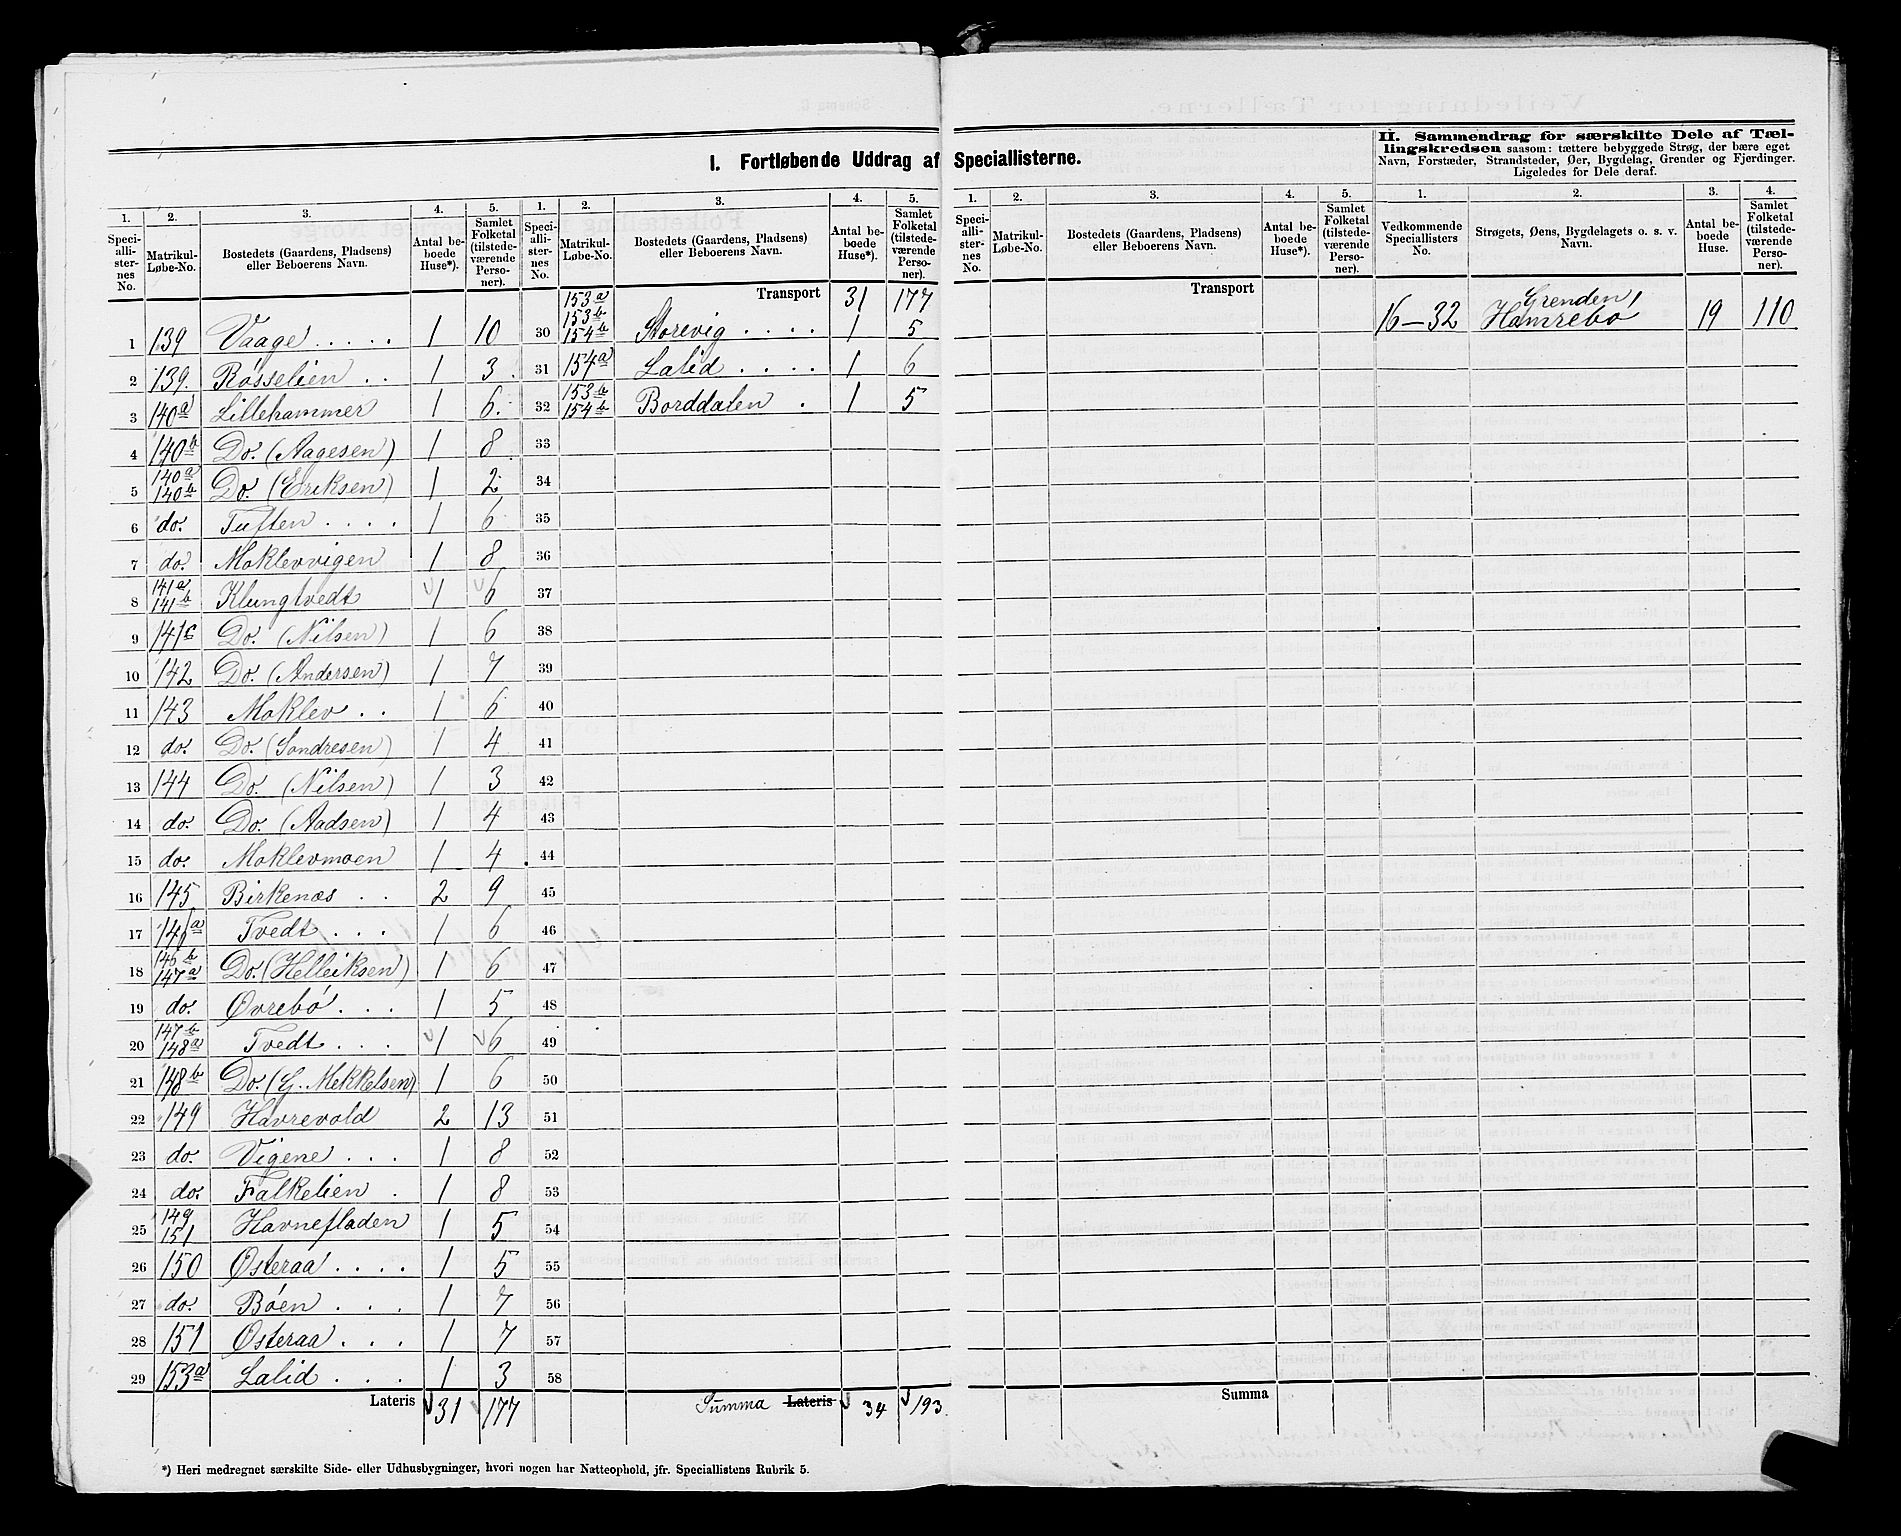 I. Fortløbende Uddrag af Speciallisterne.
II. Sammendrag for særskilte Dele af Tællingskredsen saasom: tættere bebyggede Strøg, der bære eget
Navn, Forstæder, Strandsteder, Øer, Bygdelag, Grender og Fjerdinger.
Ligeledes for Dele deraf.
1. 2. 3. 4. 5. 1. 2. 3. 4. 5.
Speciallisternes No. Matrikul-Løbe-No. Bostedets (Gaardens, Pladsens) eller Beboerens Navn. Antal beboede Huse*). Samlet Folketal (tilstedeværende Personer).
1 139 Vaage . . . . . 1 10
2 139. Røsselien . . 1 3
3 140a Lillehammer 1 6
4 140b Do. (Aagesen) 1 8
5 140a 140b Do. (Eriksen) 1 2
6 do. Tuften . . . . 1 6
7 do. Moklevvigen 1 8
8 141a 141b Klungtvedt 1 6
9 141c Do. (Nilsen) 1 6
10 142 Do. (Andersen) 1 7
11 143 Moklev . . 1 6
12 do. Do. (Sondresen) 1 4
13 144 Do. (Nilsen) 1 3
14 do. Do. (Aadsen) 1 4
15 do. Moklevmoen 1 4
16 145 Birkenæs . . 2 9
17 146a Tvedt . . . 1 6
18 146b 147a Do. (Helleiksen) 1 6
19 do. Øvrebø . . . 1 5
20 147b 148a Tvedt . . . 1 6
21 148b Do. (G. Mekkelsen) 1 6
22 149 Havrevold 2 13
23 do. Vigene . . . 1 8
24 do. Falkelien . 1 8
25 149 151 Havnefladen 1 5
26 150 Østeraa . . . . 1 5
27 do. Bøen . . . 1 7
28 151 Østeraa . . . 1 7
29 153a Lalid . . . 1 3
Lateris 31 177
Speciallisternes No. Matrikul-Løbe-No. Bostedets (Gaardens, Pladsens) eller Beboerens Navn. Antal beboede Huse*). Samlet Folketal (tilstedeværende Personer).
Transport 31 177
30 153a 153b 154b Storevig . . . . 1 5
31 154a Lalid . . . . 1 6
32 153b 154b Borddalen . 1 5
33
34
35
36
37
38
39
40
41
42
43
44
45
46
47
48
49
50
51
52
53
54
55
56
57
58
Summa Lateris 34 193.
*) Heri medregnet særskilte Side- eller Udhusbygninger, hvori nogen har Natteophold, jfr. Speciallistens Rubrik 5.
1. 2. 3. 4. 5.
Speciallisternes No. Matrikul-Løbe-No. Bostedets (Gaardens, Pladsens) eller Beboerens Navn. Antal beboede Huse*). Samlet Folketal (tilstedeværende Personer).
Transport
Summa
1. 2. 3. 4.
Vedkommende Speciallisters No. Strøgets, Øens, Bygdelagets o. s. v. Navn. Antal beboede Huse. Samlet Folketal (tilstedeværende Personer).
16–32 Grenden, Hamrebø 19 110